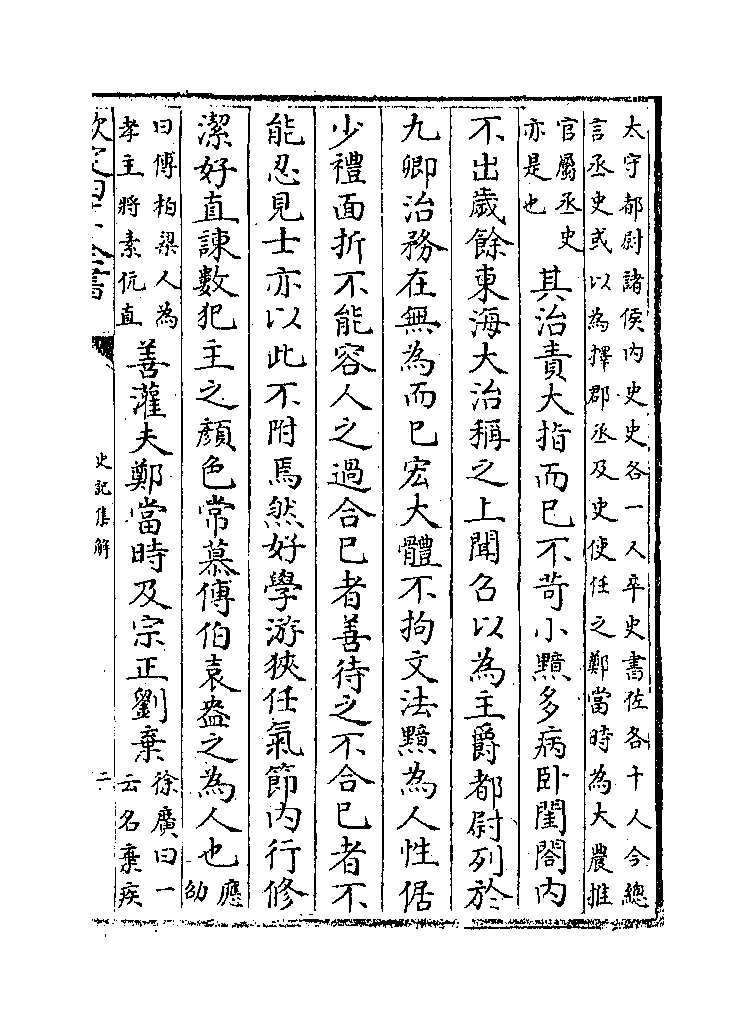 太守都尉諸侯内史史各一人卒史書佐各十人今總
言丞史或以為擇郡丞及史使任之鄭當時為大農推
官屬丞史
亦是也
其治責大指而已不苛小黯多病卧閨閤内
不出歲餘東海大治稱之上聞召以為主爵都尉列於
九卿治務在無為而已宏大體不拘文法黯為人性倨
少禮面折不能容人之過合已者善待之不合已者不
能忍見士亦以此不附焉然好學游狹任氣節内行修
潔好直諫數犯主之顔色常慕傅伯袁盎之為人也
應
劭
曰傅柏梁人為
孝主將素伉直
善灌夫鄭當時及宗正劉棄
徐廣曰一
云名棄疾
欽定四庫全書
史記集解
二